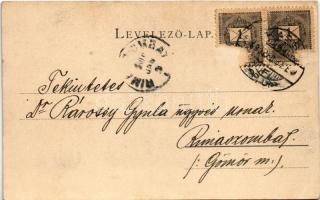 LEVELEZŐ-LAP.
Tekintetes
Dr Rárossy Gyula ügyvéd urnak
Rimaszombat
(: Gömör m.)